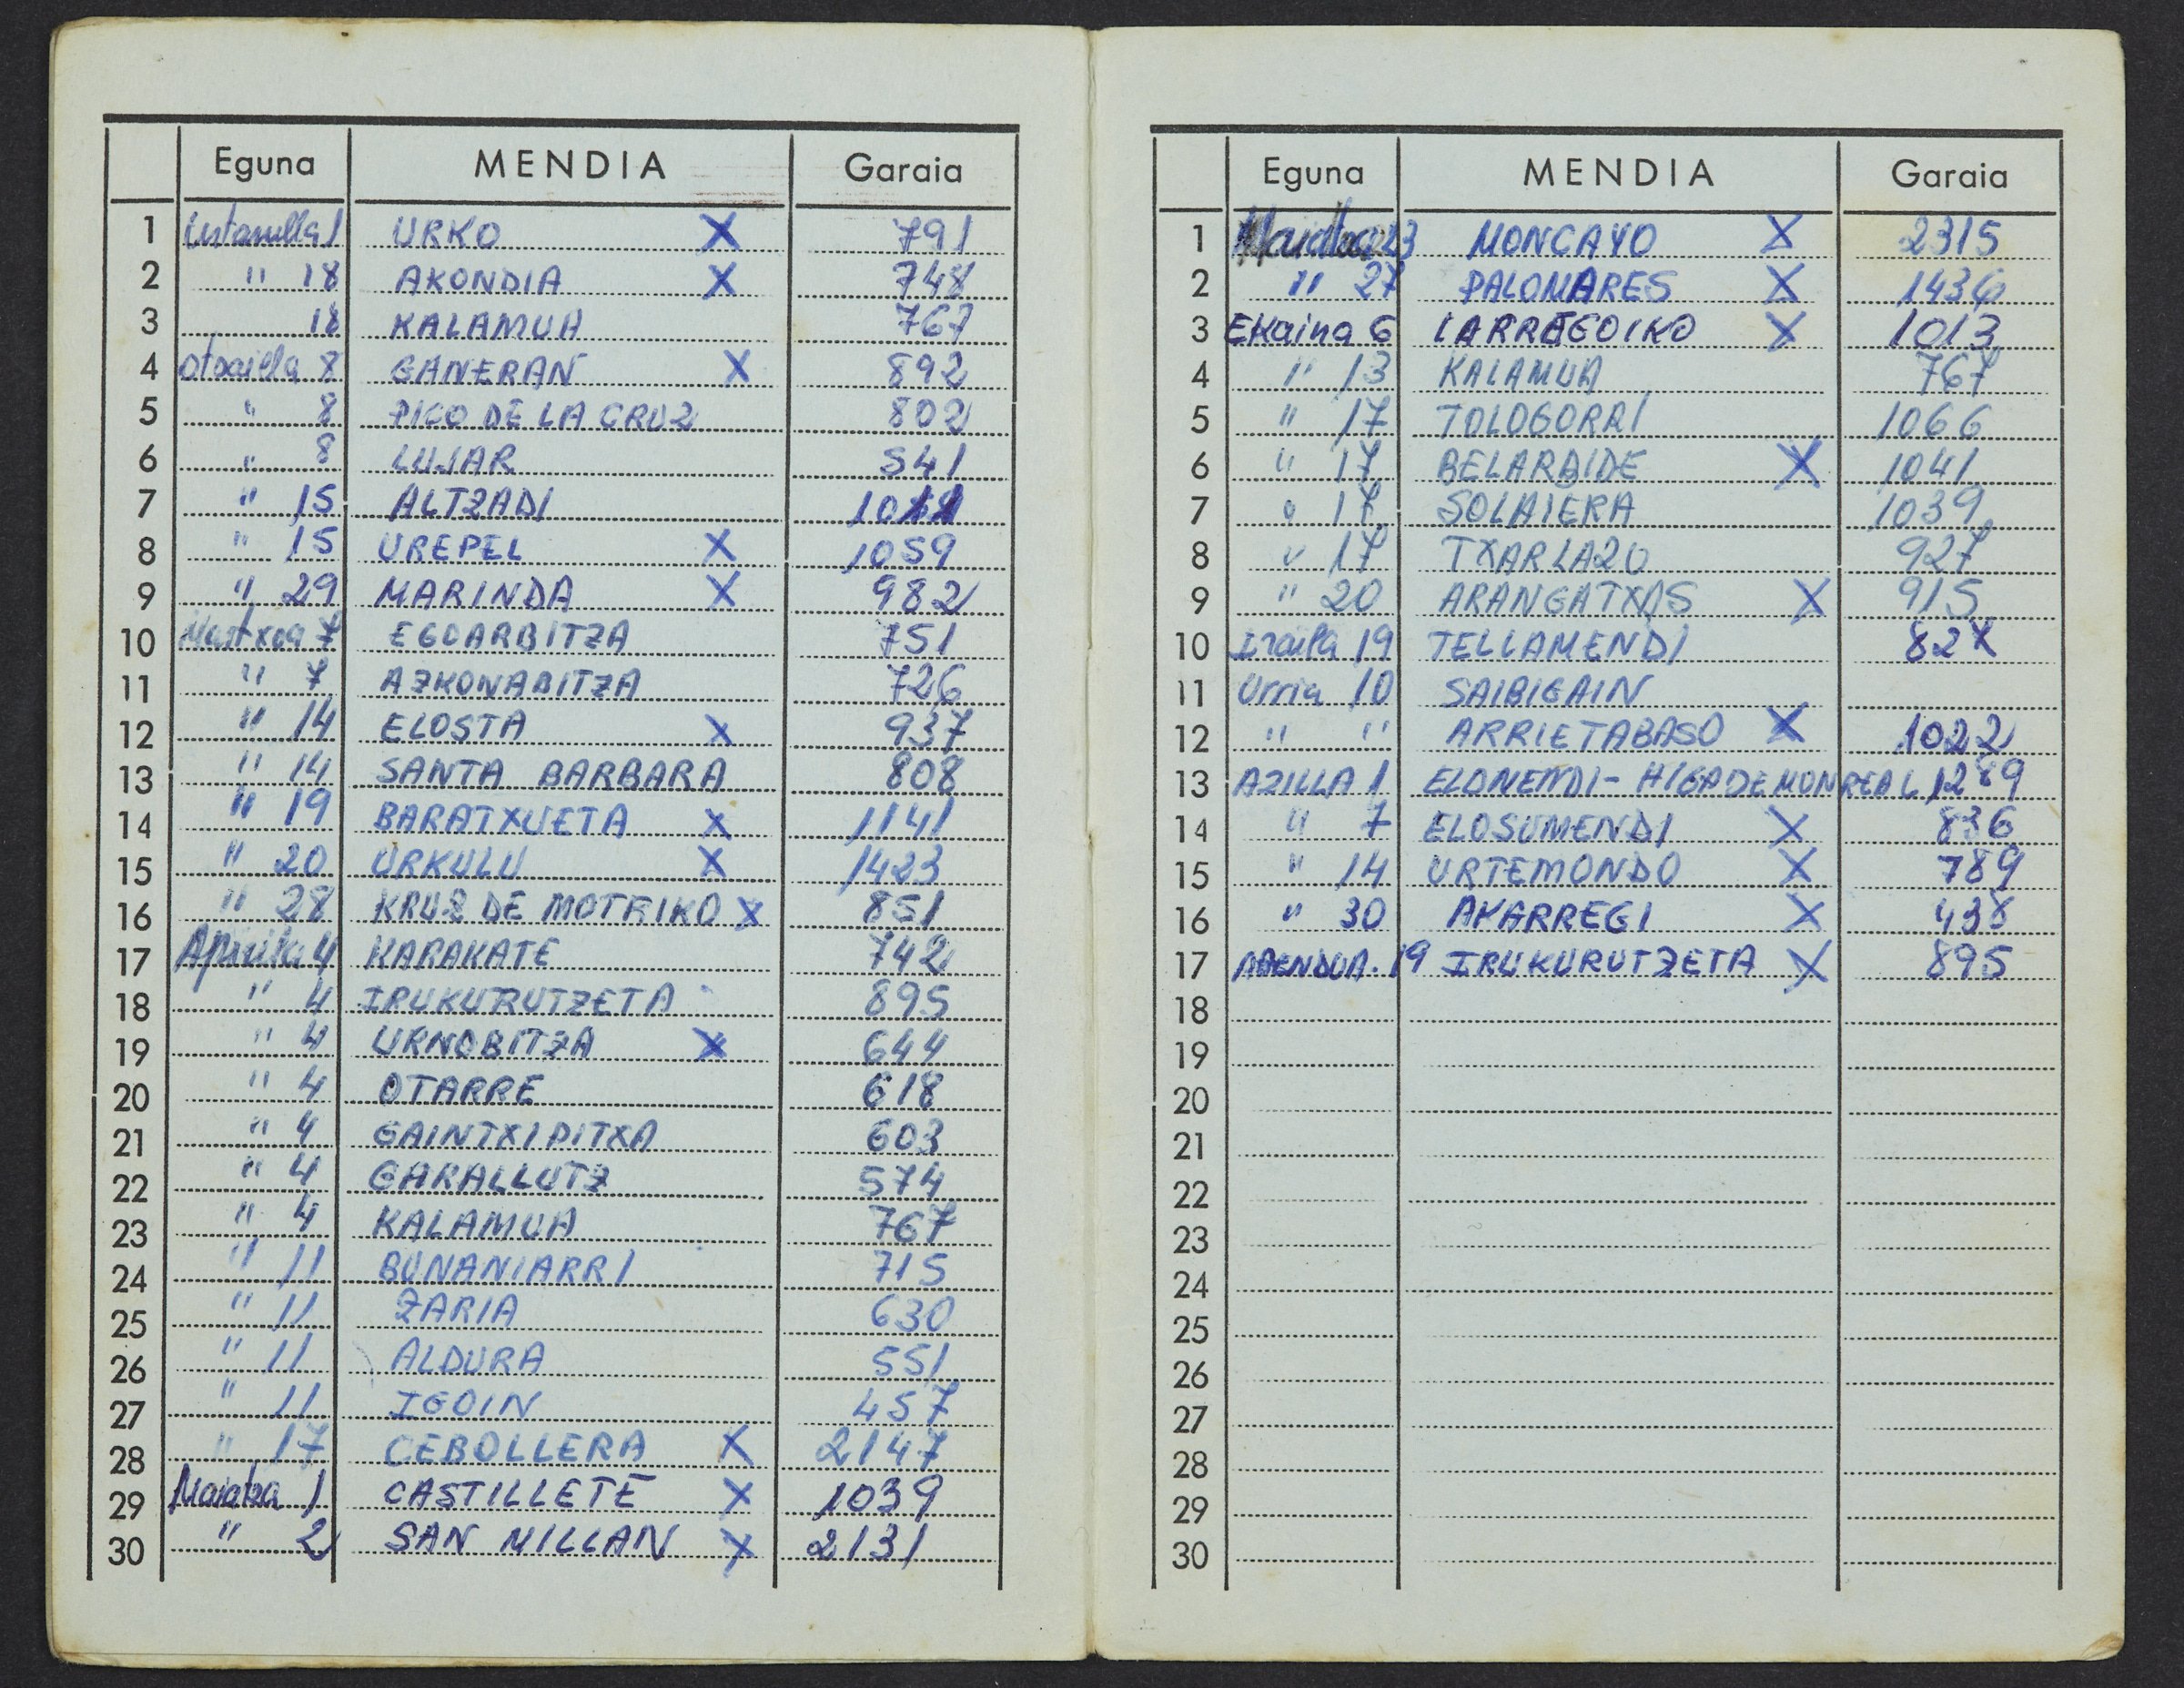 Eguna MENDIA Garaia
1 Ustarrilla 1 URKO X 791
2 " 18 AKONDIA X 748
3 18 KALAMUA 767
4 otsailla 8 GANERAN X 892
5 " 8 PICO DE LA CRUZ 802
6 " 8 LUJAR 541
7 " 15 ALTZADI
8 " 15 UREPEL X 1059
9 " 29 MARINDA X 982
10 Martxoa 7 EGOARBITZA 751
11 " 7 AZKONABITZA 726
12 " 14 ELOSTA X 937
13 " 14 SANTA BARBARA 808
14 " 19 BARATXUETA X 1141
15 " 20 URKULU X 1423
16 " 28 KRUZ DE MOTRIKO X 851
17 Aprilla 4 KARAKATE 742
18 " 4 IRUKURUTZETA 895
19 " 4 URNOBITZA X 644
20 " 4 OTARRE 618
21 " 4 GAINTXIPITXA 603
22 " 4 GARALLUTZ 574
23 " 4 KALAMUA 767
24 " 11 BUNANIARRI 715
25 " 11 ZARIA 630
26 " 11 ALDURA 551
27 " 11 IGOIN 457
28 " 17 CEBOLLERA X 2147
29 Maiatza 1 CASTILLETE X 1039
30 " 2 SAN MILLAN X 2131
Eguna MENDIA Garaia
1 23 MONCAYO X 2315
2 " 27 PALOMARES X 1436
3 EKaina 6 LARREGOIKO X 1013
4 " 13 KALAMUA 767
5 " 17 TOLOGORRI 1066
6 " 17 BELARBIDE X 1041
7 " 17 SOLAIERA 1039
8 " 17 TXARLAZO 927
9 " 20 ARANGATXAS X 915
10 Iraila 19 TELLAMENDI
11 Urria 10 SAIBIGAIN
12 " " ARRIETABASO X 1022
13 AZILLA 1 ELOMENDI - HIGA DE MONREAL 1289
14 " 7 ELOSUMENDI X 836
15 " 14 URTEMONDO X 789
16 " 30 AKARREGI X 438
17 ABENDUA. 19 IRUKURUTZETA X 895
18
19
20
21
22
23
24
25
26
27
28
29
30